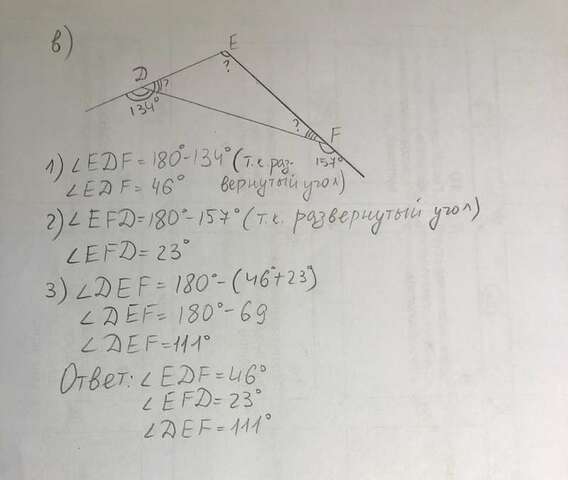 в)
E
?
D
?
134°
?
F
157°
1) ∠EDF = 180° - 134° (т.к раз-
∠EDF = 46° вернутый угол)
2) ∠EFD = 180° - 157° (т.к. развернутый угол)
∠EFD = 23°
3) ∠DEF = 180° - (46° + 23°)
∠DEF = 180° - 69
∠DEF = 111°
Ответ: ∠EDF = 46°
∠EFD = 23°
∠DEF = 111°